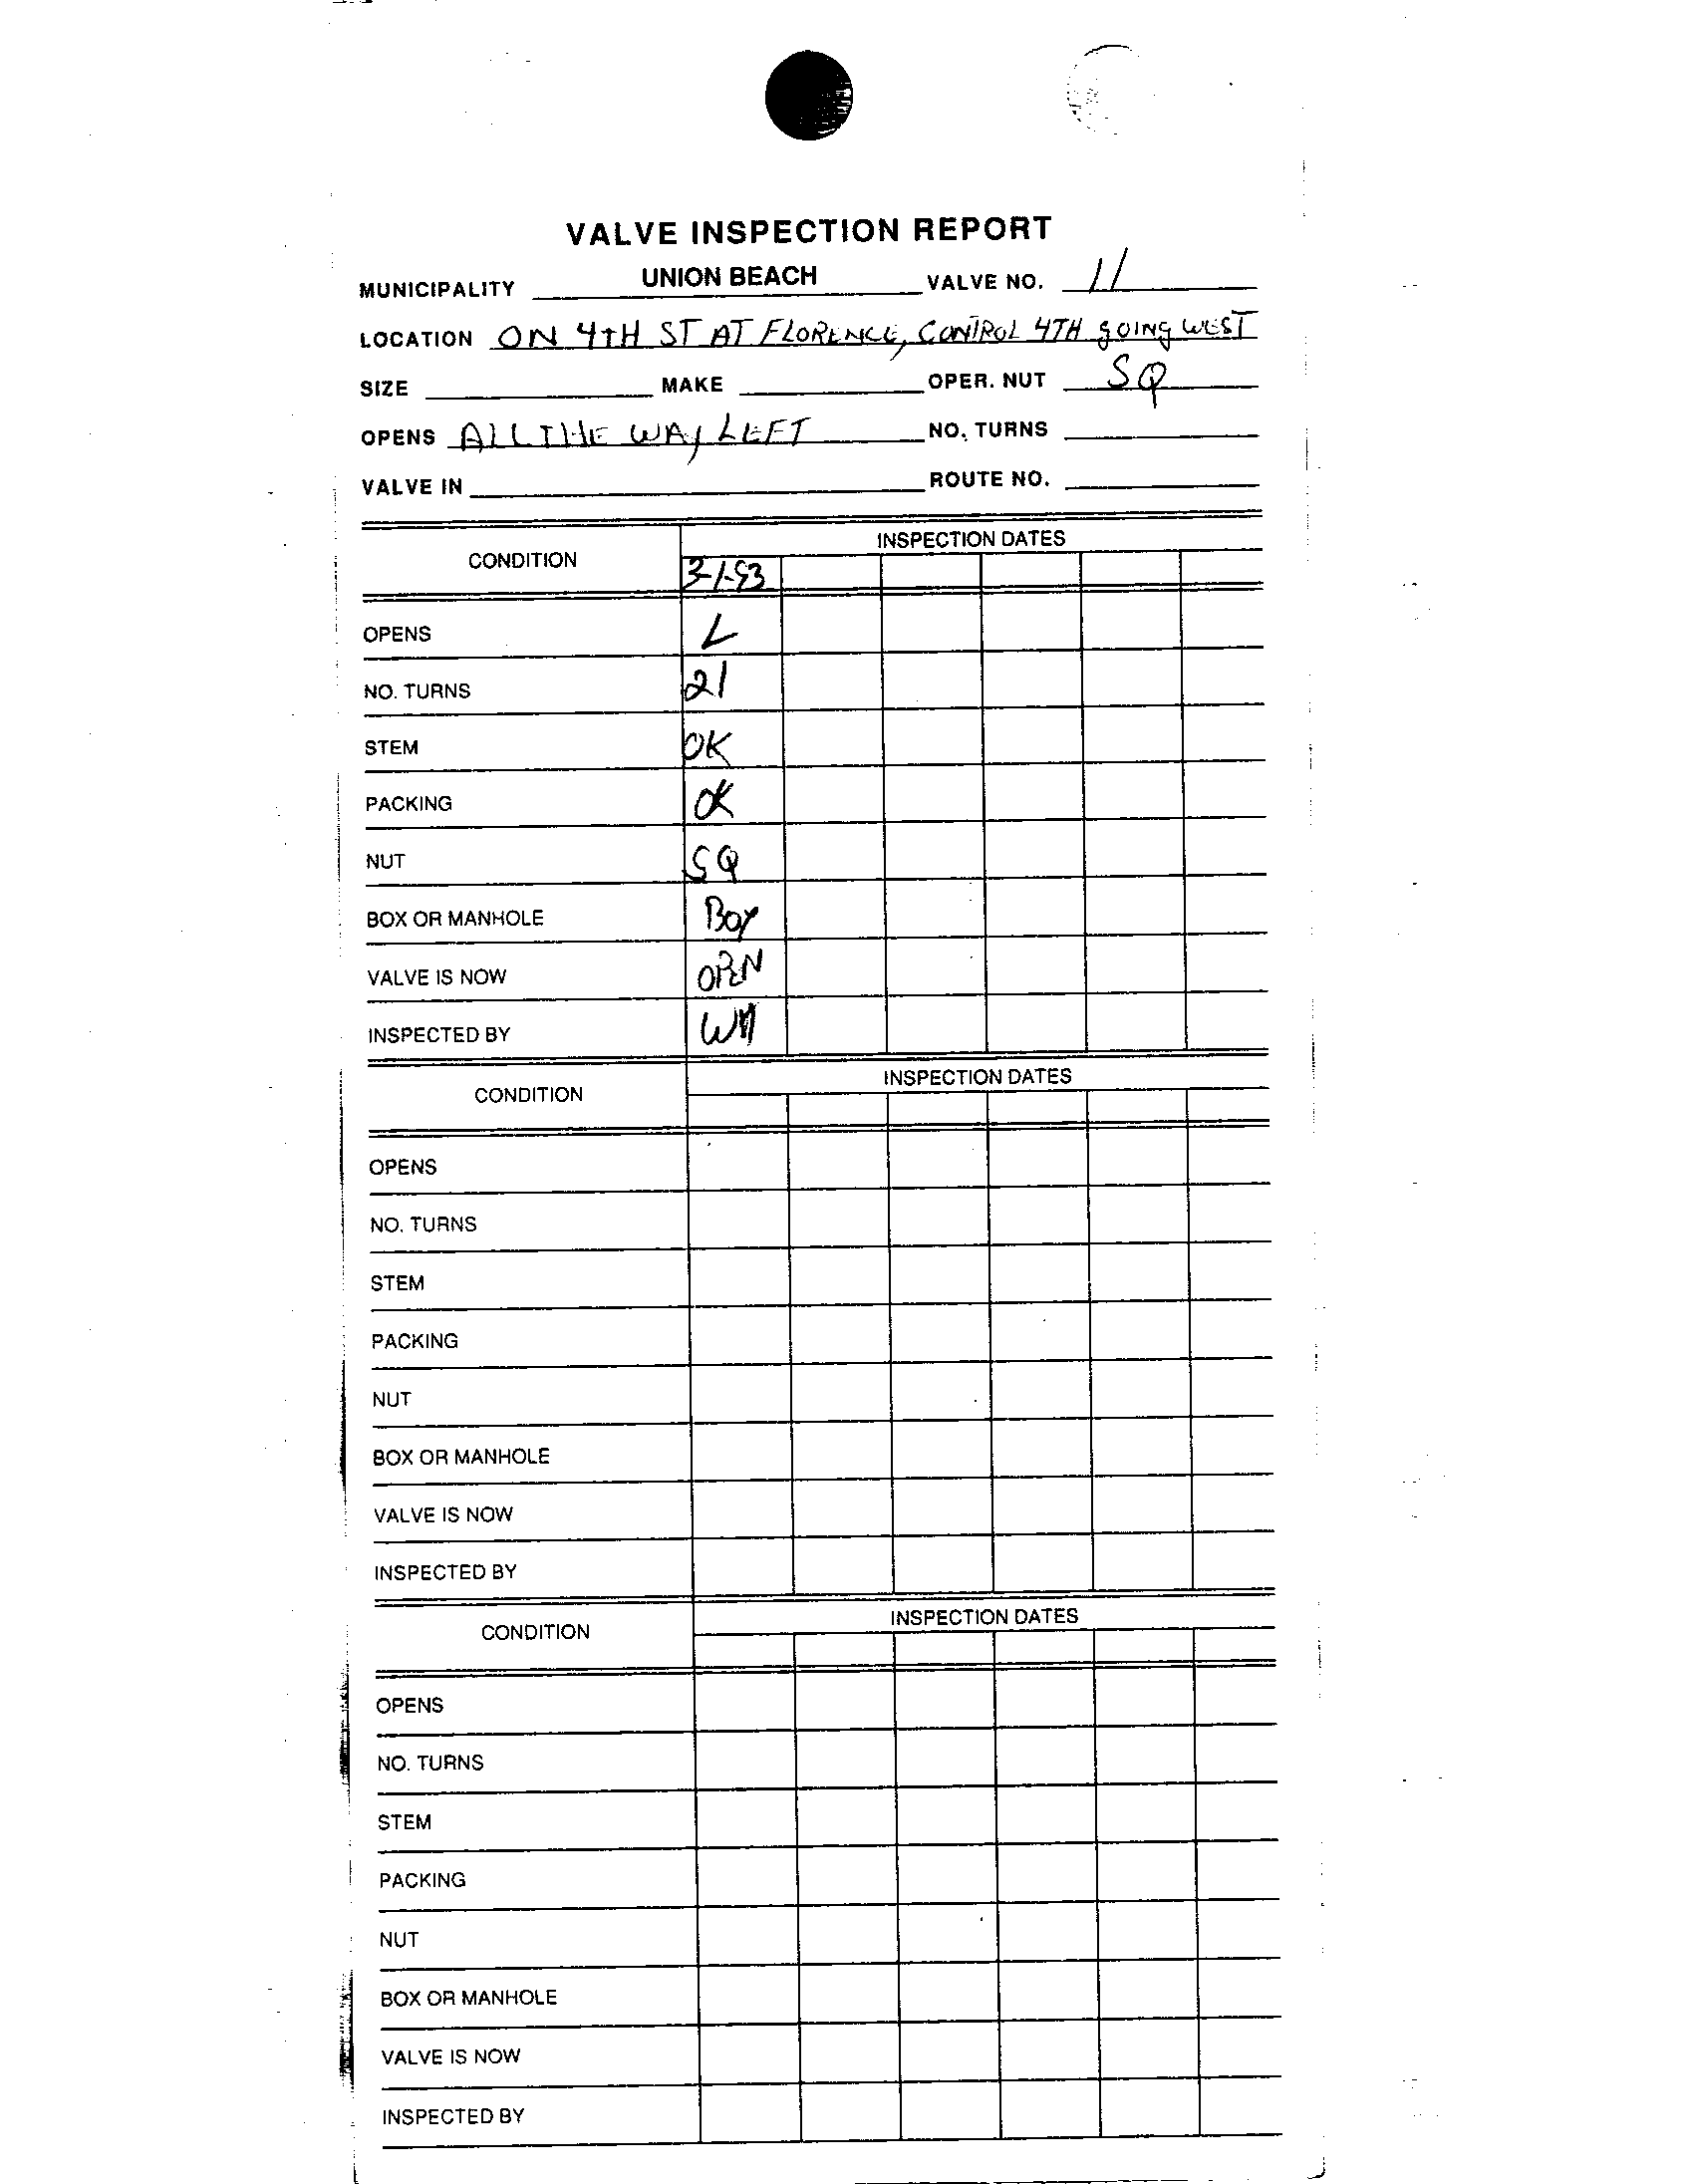 VALVE INSPECTION REPORT
MUNICIPALITY UNION BEACH VALVE NO. 11
LOCATION ON 4TH ST AT FLORENCE, CONTROL 4TH GOING WEST
SIZE MAKE OPER. NUT SQ
OPENS ALL THE WAY LEFT NO. TURNS
VALVE IN ROUTE NO.
CONDITION INSPECTION DATES
3-1-93
OPENS L
NO. TURNS 21
STEM OK
PACKING OK
NUT SQ
BOX OR MANHOLE BOX
VALVE IS NOW OPEN
INSPECTED BY WM
CONDITION INSPECTION DATES
OPENS
NO. TURNS
STEM
PACKING
NUT
BOX OR MANHOLE
VALVE IS NOW
INSPECTED BY
CONDITION INSPECTION DATES
OPENS
NO. TURNS
STEM
PACKING
NUT
BOX OR MANHOLE
VALVE IS NOW
INSPECTED BY